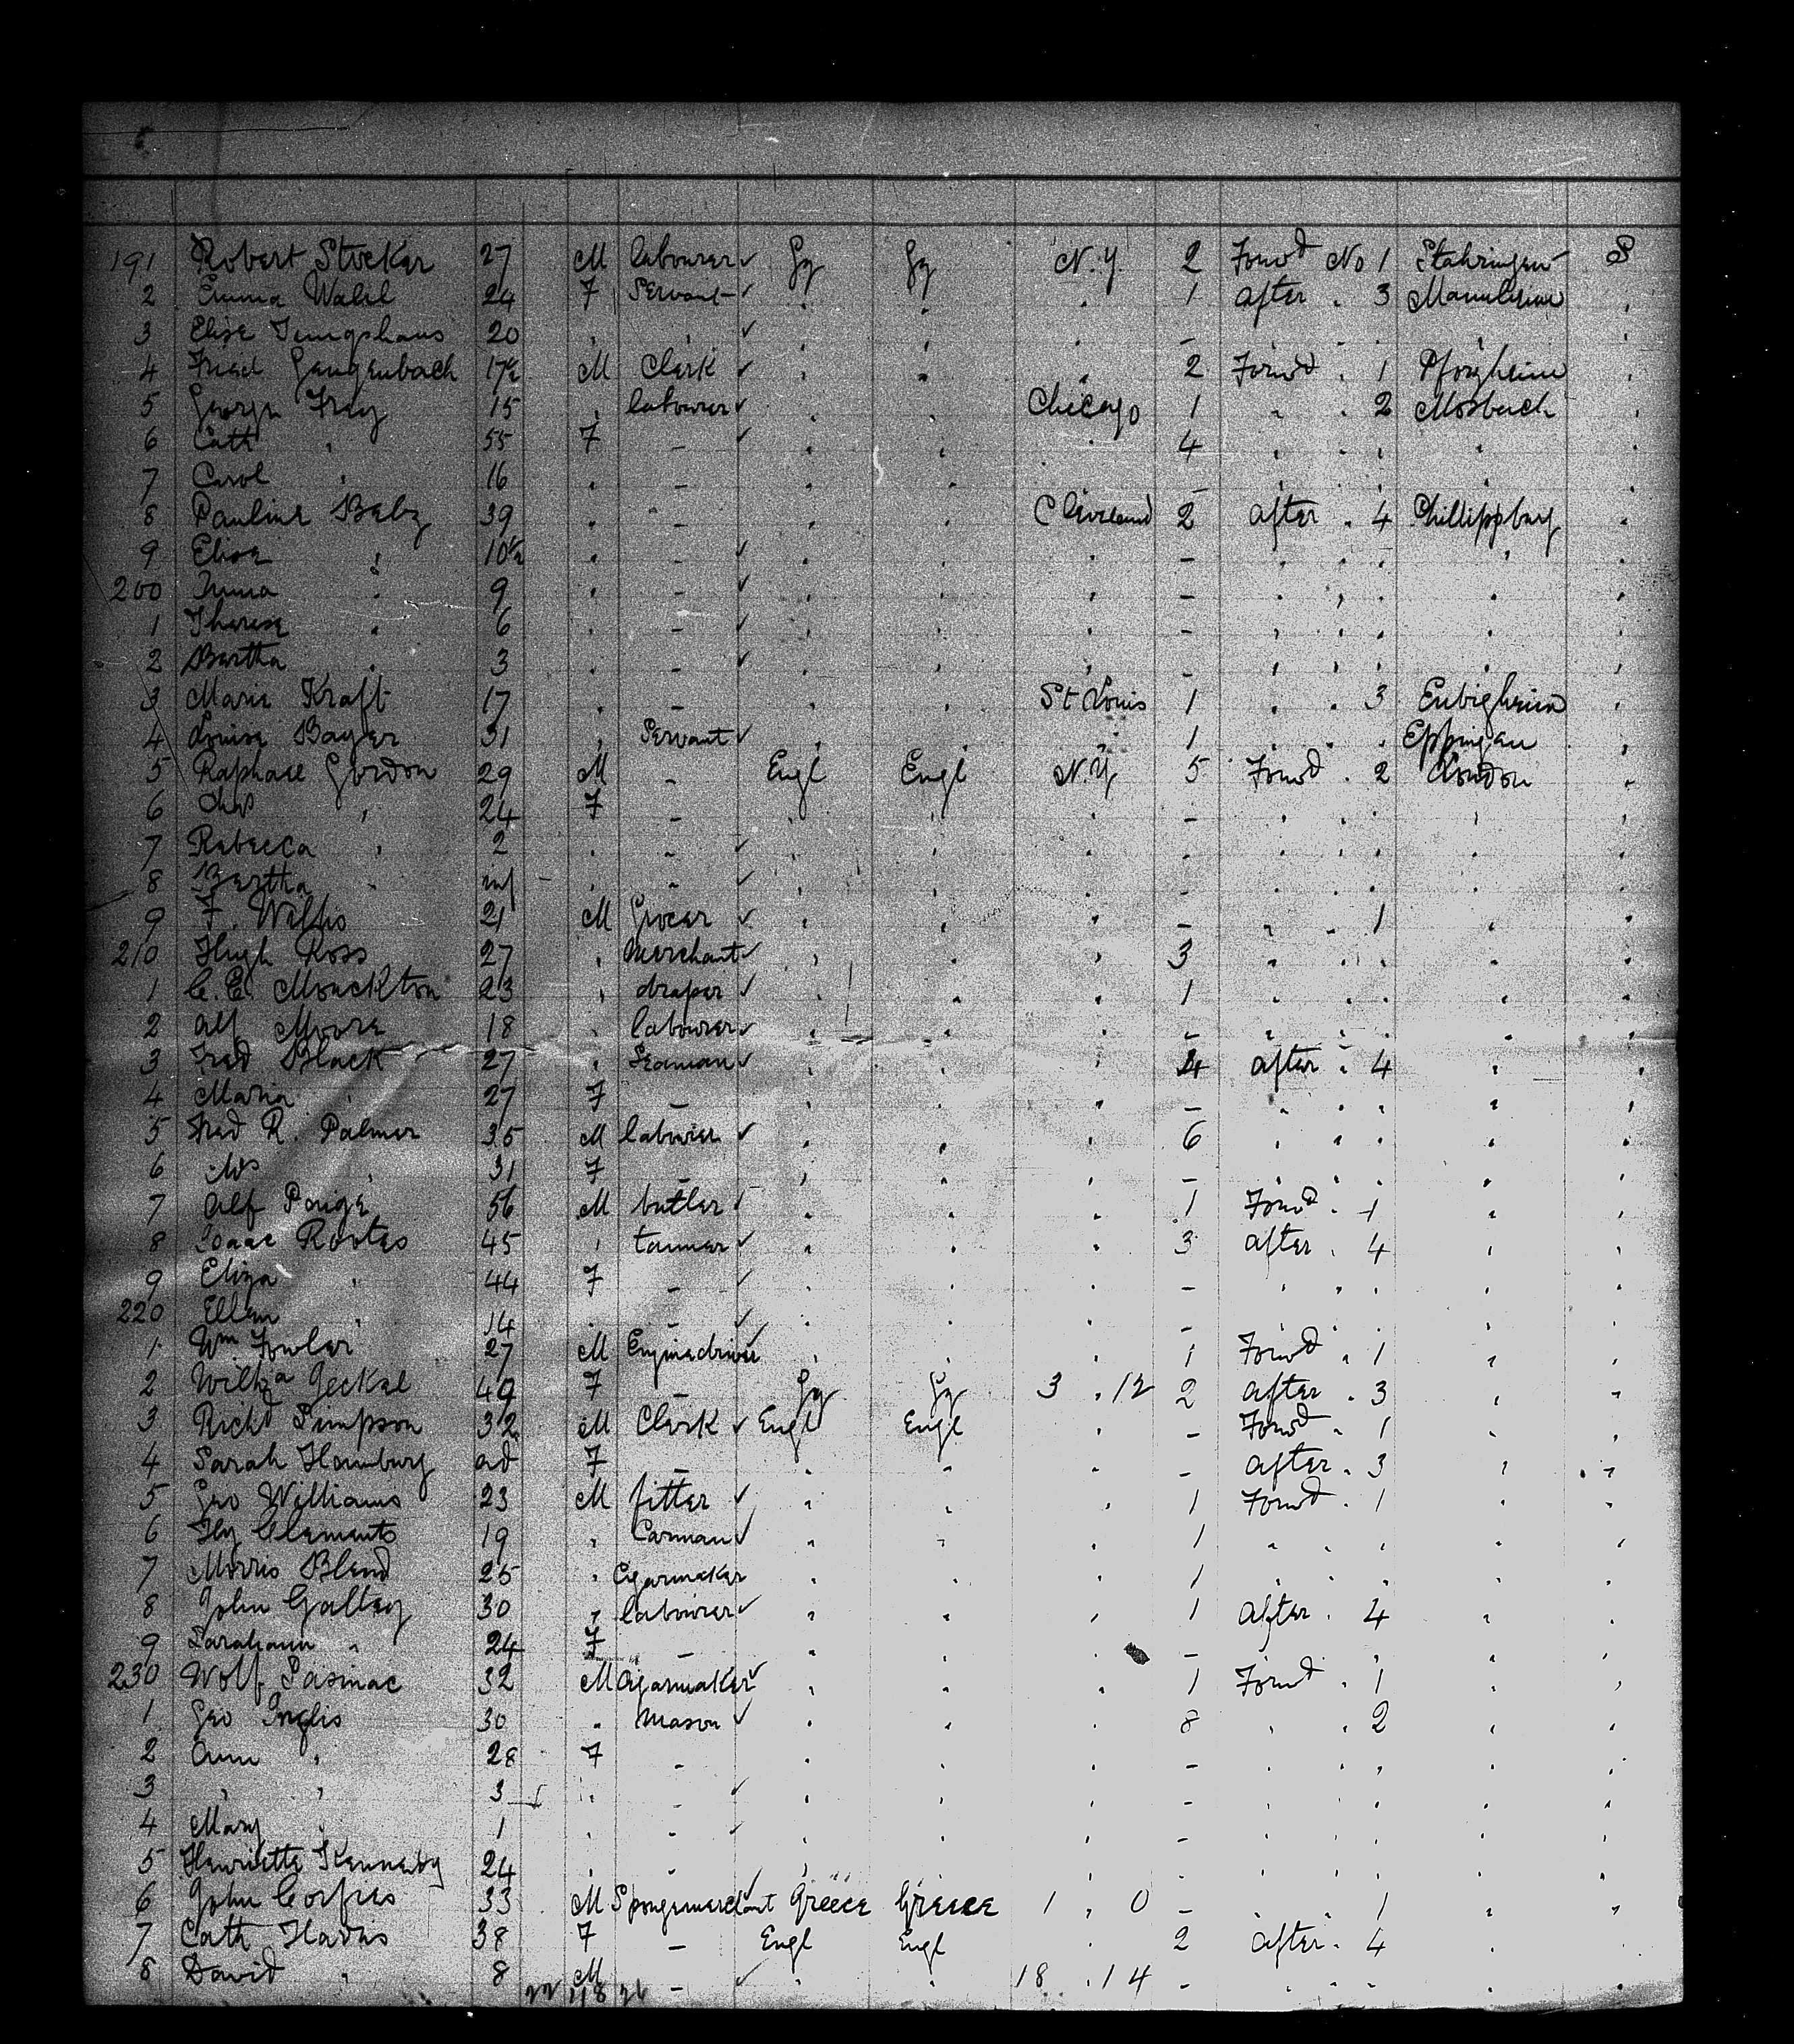 191 Robert Stocker 27 M labourer ✓ Gy Gy N.Y. 2 Forwd No 1 Stahringen S
2 Emma Wahl 24 F Servant ✓ " " " 1 after " 3 Mannheim "
3 Elise Jungshaus 20 " " ✓ " " " - " " " " "
4 Fried Gengenbach 17½ M Clerk ✓ " " " 2 Forwd " 1 Pforzheim "
5 Georg Frey 15 " labourer ✓ " " Chicago 1 " " 2 Mosbach "
6 Cath " 55 F - ✓ " " " 4 " " " " "
7 Carol " 16 " - " " " - " " " " "
8 Pauline Balz 39 " - " " Cleveland 2 after " 4 Phillippburg "
9 Elisa " 10½ " - ✓ " " " - " " " " "
200 Anna " 9 " - ✓ " " " - " " " " "
1 Therese " 6 " - ✓ " " " - " " " " "
2 Bertha " 3 " - ✓ " " " - " " " " "
3 Marie Kraft 17 " - " " St Louis 1 " " 3 Eubigheim "
4 Louise Bayer 31 " Servant ✓ " " " 1 " " " Eppingen "
5 Raphael Gordon 29 M - Engl Engl N.Y. 5 Forwd " 2 London "
6 Mrs " 24 F - " " " - " " " " "
7 Rebecca " 2 " " ✓ " " " - " " " " "
8 Bertha " inf - " " ✓ " " " - " " " " "
9 F. Willis 21 M Grocer ✓ " " " - " " 1 " "
210 Hugh Ross 27 " Merchant ✓ " " " 3 " " " " "
1 C. E. Monckton 23 " draper ✓ " " " 1 " " " " "
2 Alf Moore 18 " labourer ✓ " " " - " " " " "
3 Fred Black 27 " Seaman ✓ " " " 4 after " 4 " "
4 Maria " 27 F - " " " - " " " " "
5 Fred R. Palmer 35 M labourer ✓ " " " 6 " " " " "
6 Mrs " 31 F - " " " - " " " " "
7 Alf Paige 56 M butler ✓ " " " 1 Forwd " 1 " "
8 Isaac Rootes 45 " tanner ✓ " " " 3 after " 4 " "
9 Eliza " 44 F - ✓ " " " - " " " " "
220 Ellen " 14 " - ✓ " " " - " " " " "
1 Wm Fowler 27 M Enginedriver ✓ " " " 1 Forwd " 1 " "
2 Wilha Jeckel 49 F - Gy Gy 3 . 12 2 after " 3 " "
3 Richd Simpson 32 M Clerk ✓ Engl Engl " - Forwd " 1 " "
4 Sarah Homburg ad F - " " " - after " 3 " "
5 Geo Williams 23 M fitter ✓ " " " 1 Forwd " 1 " "
6 Hy Clements 19 " Carman ✓ " " " 1 " " " " "
7 Morris Blend 25 " Cigarmaker " " " 1 " " " " "
8 John Galley 30 " labourer ✓ " " " 1 after " 4 " "
9 Sarahann " 24 F - " " " - " " " " "
230 Wolf Pasinac 32 M Cigarmaker ✓ " " " 1 Forwd " 1 " "
1 Geo Inglis 30 " Mason ✓ " " " 8 " " 2 " "
2 Ann " 28 F - " " " - " " " " "
3 " " 3 " - ✓ " " " - " " " " "
4 Mary " 1 " - ✓ " " " - " " " " "
5 Henriette Kennedy 24 " - " " " - " " " " "
6 John Corfies 33 M Spongemerchant ✓ Greece Greece 1 . 0 - " " 1 " "
7 Cath Harris 38 F - Engl Engl " 2 after " 4 " "
8 David " 8 M - ✓ " " 18 . 14 - " " " " "